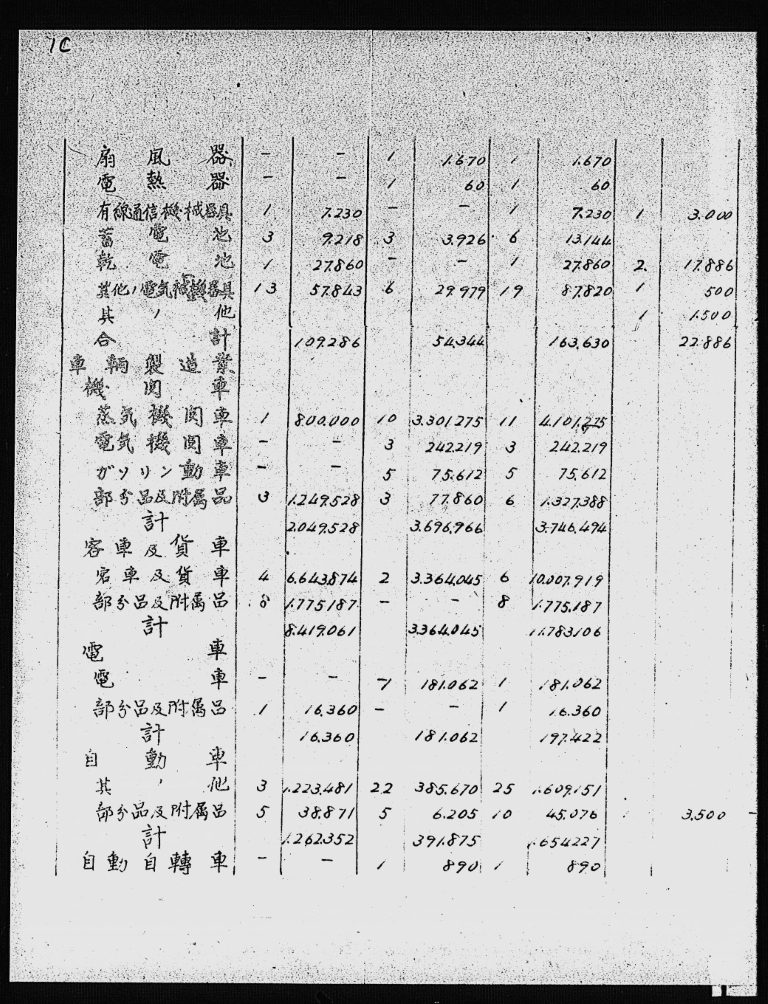 1C
扇風器 - - 1 1.670 1 1.670
電熱器 - - 1 60 1 60
有線通信機械器具 1 7.230 - - 1 7.230 1 3.000
蓄電池 3 9.218 3 3.926 6 13.144
乾電池 1 27.860 - - 1 27.860 2. 17.886
其他ノ電気機械器具 13 57.843 6 29.979 19 87.820 1 500
其ノ他 1 1.500
合計 109.286 54.344 163.630 22.886
車輌製造業
機関車
蒸気機関車 1 800.000 10 3.301.275 11 4.101.275
電気機関車 - - 3 242.219 3 242.219
ガソリン動車 - - 5 75.612 5 75.612
部分品及附属品 3 1.249.528 3 77.860 6 1.327.388
計 2.049.528 3.696.966 3.746.494
客車及貨車
客車及貨車 4 6.643.874 2 3.364.045 6 10.007.919
部分品及附属品 8 1.775.187 - - 8 1.775.187
計 8.419.061 3.364.045 11.783.106
電車
電車 - - 1 181.062 1 181.062
部分品及附属品 1 16.360 - - 1 16.360
計 16.360 181.062 197.422
自動車
其ノ他 3 1.223.481 22 385.670 25 1.609.151
部分品及附属品 5 38.871 5 6.205 10 45.076 3.500
計 1.262.352 391.875 1.654.227
自動自轉車 - - 1 890 1 890